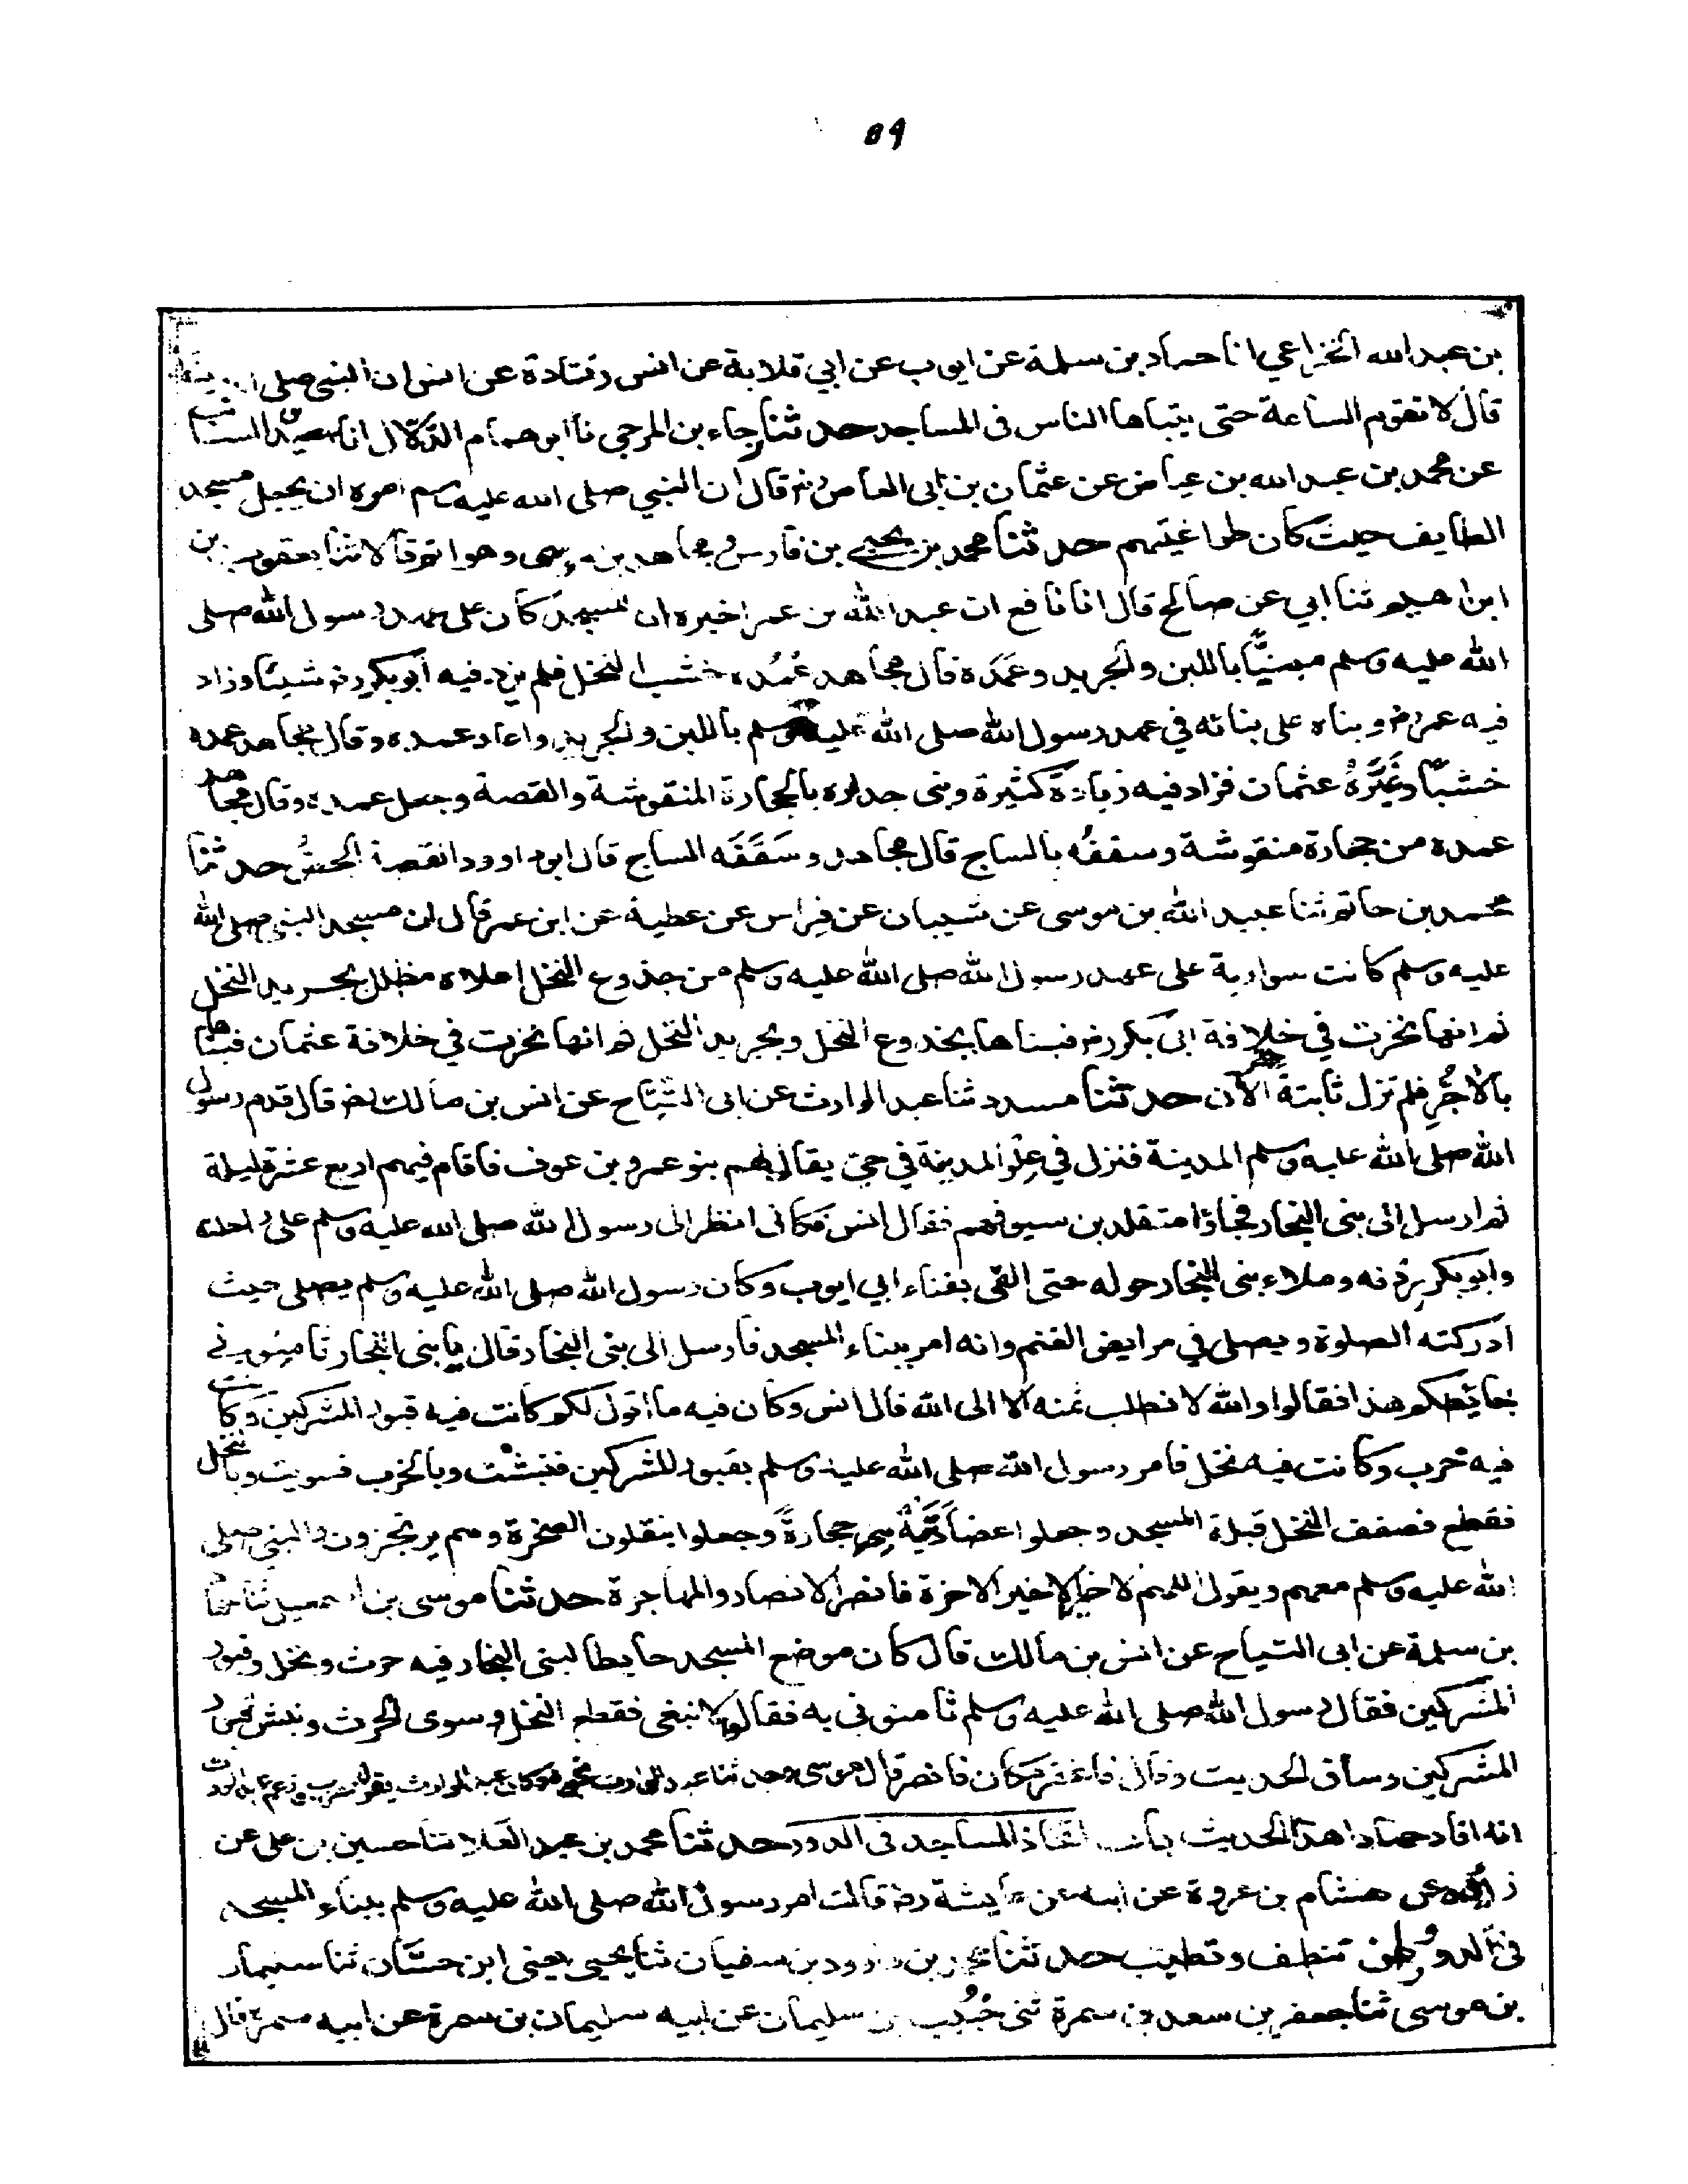 ٥٩
بن عبد الله الخزاعي انا حماد بن سلمة عن ايوب عن ابي قلابة عن انس وقتادة عن انس ان النبي صلى
قال لا تقوم الساعة حتى يتباها الناس في المساجد حدثنا رجاء بن المرجي نا ابو همام الدّلال انا سعيد بن السائب
عن محمد بن عبد الله بن عياض عن عثمان بن ابي العاص رضـ قال ان النبي صلى الله عليه وسلم امره ان يجعل مسجد
الطايف حيث كان طواغيتهم حدثنا محمد بن يحيى بن فارس ومجاهد بن موسى وهو اتم قالا ثنا يعقوب بن
ابراهيم ثنا ابي عن صالح قال انا نافع ان عبد الله بن عمر اخبره ان المسجد كان على عهد رسول الله صلى
الله عليه وسلم مبنيًّا باللبن والجريد وعَمَده قال مجاهد عُمُده خشب النخل فلم يزد فيه ابو بكر رضـ شيئا وزاد
فيه عمر رضـ وبناه على بنائه في عهد رسول الله صلى الله عليه وسلم باللبن والجريد واعاد عمده وقال مجاهد عمده
خشبًا وغَيَّرَهُ عثمان فزاد فيه زيادة كثيرة وبنى جداره بالحجارة المنقوشة والقصة وجعل عمده وقال مجاهد
عمده من حجارة منقوشة وسقفُه بالساج قال مجاهد وسَقَّفَه الساج قال ابو داوود القصة الجصُّ حدثنا
محمد بن حاتم ثنا عبيد الله بن موسى عن شيبان عن فِراس عن عطية عن ابن عمر قال ان مسجد النبي صلى الله
عليه وسلم كانت سوارية على عهد رسول الله صلى الله عليه وسلم من جذوع النخل اعلاه مظلل بجريد النخل
ثم انها نخرت في خلافة ابى بكر رضـ فبناها بجذوع النخل وبجريد النخل ثم انها نخرت في خلافة عثمان فبناها
بالآجُرِّ فلم تزل ثابتة الآن حدثنا مسدد ثنا عبد الوارث عن ابى التَّيَّاح عن انس بن مالك رضـ قال قدم رسول
الله صلى الله عليه وسلم المدينة فنزل في عِلْو المدينة في حي يقال لهم بنو عمرو بن عوف فاقام فيهم اربع عشرة ليلة
ثم ارسل الى بنى النجار فجاؤا متقلدين سيوفهم فقال انس فكانى انظر الى رسول الله صلى الله عليه وسلم على راحلته
وابو بكر ردفه وملاء بنى النجار حوله حتى القى بفناء ابي ايوب وكان رسول الله صلى الله عليه وسلم يصلى حيث
ادركته الصلوة ويصلى في مرابض الغنم وانه امر ببناء المسجد فارسل الى بنى النجار قال يا بنى النجار ثامنوني
بحايطكم هذا فقالوا والله لا نطلب ثمنه الا الى الله قال انس وكان فيه ما اقول لكم كانت فيه قبور المشركين وكانت
فيه خرب وكانت فيه نخل فامر رسول الله صلى الله عليه وسلم بقبور المشركين فنبشت وبالخرب فسويت وبالنخل
فقطع فصفف النخل قبلة المسجد وجعلوا عضادتيه حجارةً وجعلوا ينقلون الصخرة وهم يرتجزون والنبي صلى
الله عليه وسلم معهم ويقول اللهم لا خير الا خير الاخرة فانصر الانصار والمهاجرة حدثنا موسى بن اسمعيل ثنا حماد
بن سلمة عن ابى التياح عن انس بن مالك قال كان موضع المسجد حايطا لبنى النجار فيه حرث ونخل وقبور
المشركين فقال رسول الله صلى الله عليه وسلم ثامنونى به فقالوا لا نبغى فقطع النخل وسوى الحرث ونبش قبور
المشركين وساق الحديث وقال فاغفر مكان فانصر قال موسى وحدثنا عبد الوارث بنحوه وكان عبد الوارث يقول خرب وزعم عبد الوارث
انه افاد حمادا هذا الحديث باب اتخاذ المساجد في الدور حدثنا محمد بن العلا ثنا حسين بن على عن
زايدة عن هشام بن عروة عن ابيه عن عايشة رضـ قالت امر رسول الله صلى الله عليه وسلم ببناء المسجد
في الدور وان تنظف وتطيب حدثنا محمد بن داوود بن سفيان ثنا يحيى يعنى ابن حسّان ثنا سليمان
بن موسى ثنا جعفر بن سعد بن سمرة ثنى خُبَيب بن سليمان عن ابيه سليمان بن سمرة عن ابيه سمرة قال